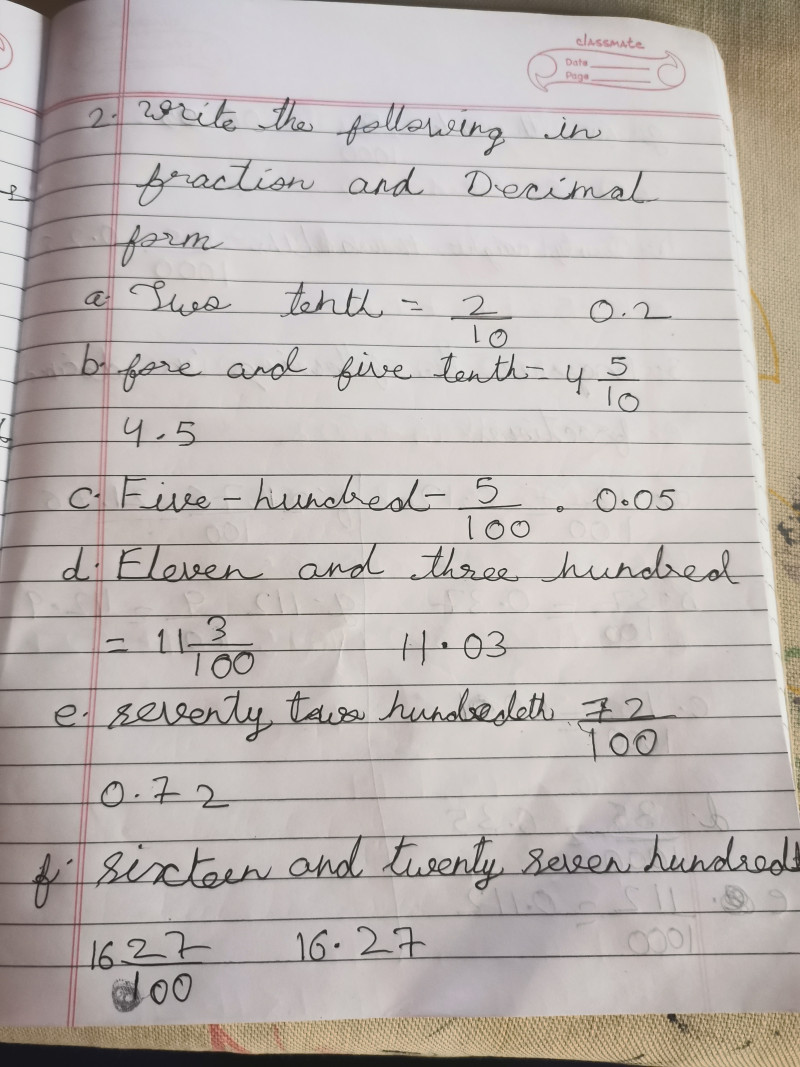 classmate
Date
Page
2. Write the following in
fraction and Decimal
form
a. Two tenth = 2/10 0.2
b. fore and five tenth = 4 5/10
4.5
c. Five - hundred - 5/100 . 0.05
d. Eleven and three hundred
= 11 3/100 11.03
e. seventy two hundredeth 72/100
0.72
f. sixteen and twenty seven hundred
16 27/100 16.27